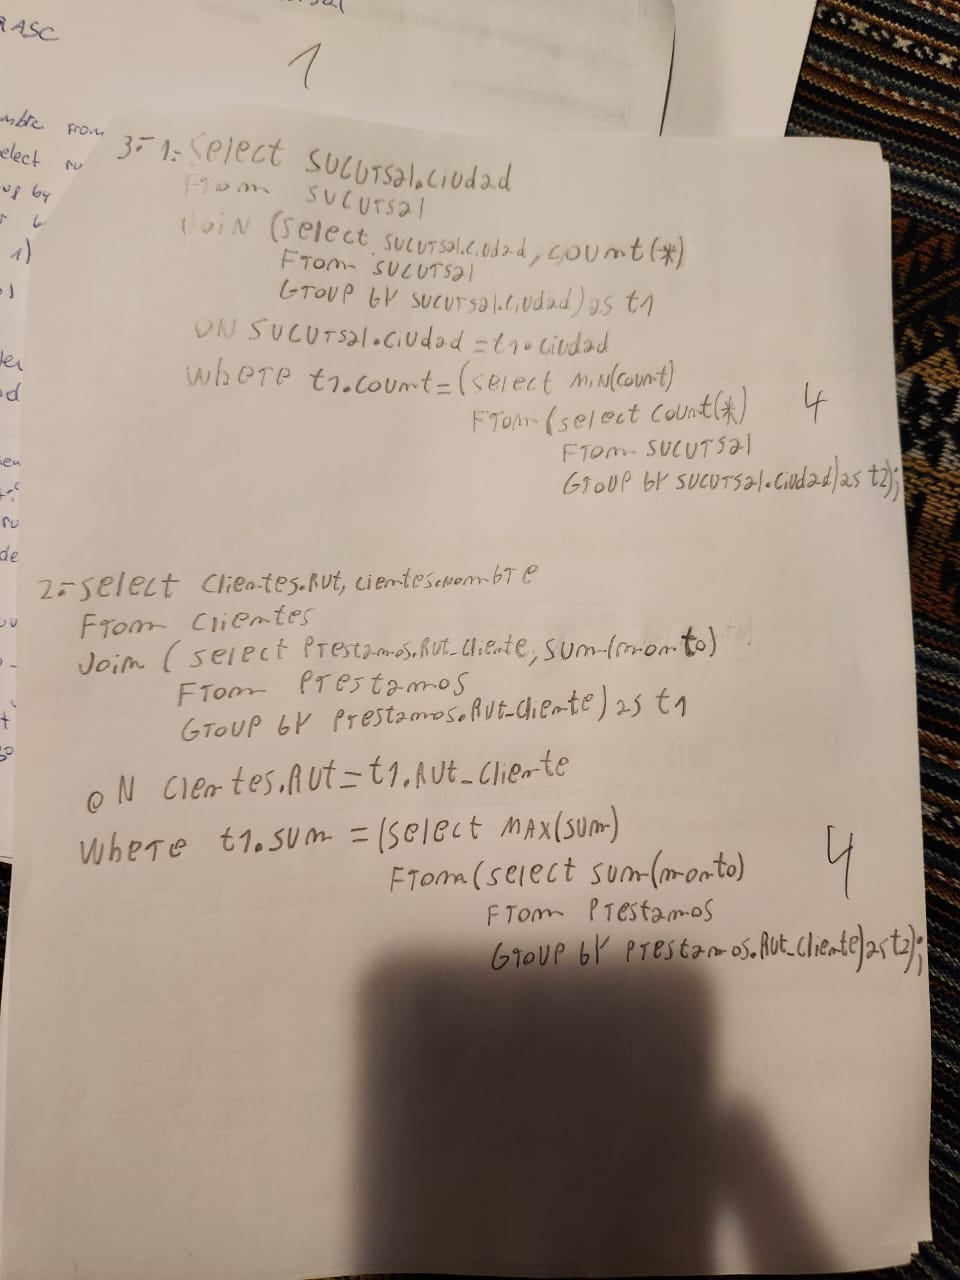 RASC
1
From
elect
by
1)
3.- 1.- select sucursal.ciudad
From sucursal
Join (select sucursal.ciudad, count(*)
From sucursal
Group by sucursal.ciudad) as t1
ON sucursal.ciudad = t1.ciudad
Where t1.count = (select MIN(count)
From (select count(*)
From sucursal
Group by sucursal.ciudad) as t2);
4
2.- select clientes.Rut, cientes.nombre
From clientes
Join (select Prestamos.Rut_cliente, sum(monto)
From Prestamos
Group by Prestamos.Rut_cliente) as t1
ON clientes.Rut = t1.Rut_cliente
Where t1.sum = (select MAX(sum)
From (select sum(monto)
From Prestamos
Group by Prestamos.Rut_cliente) as t2);
4